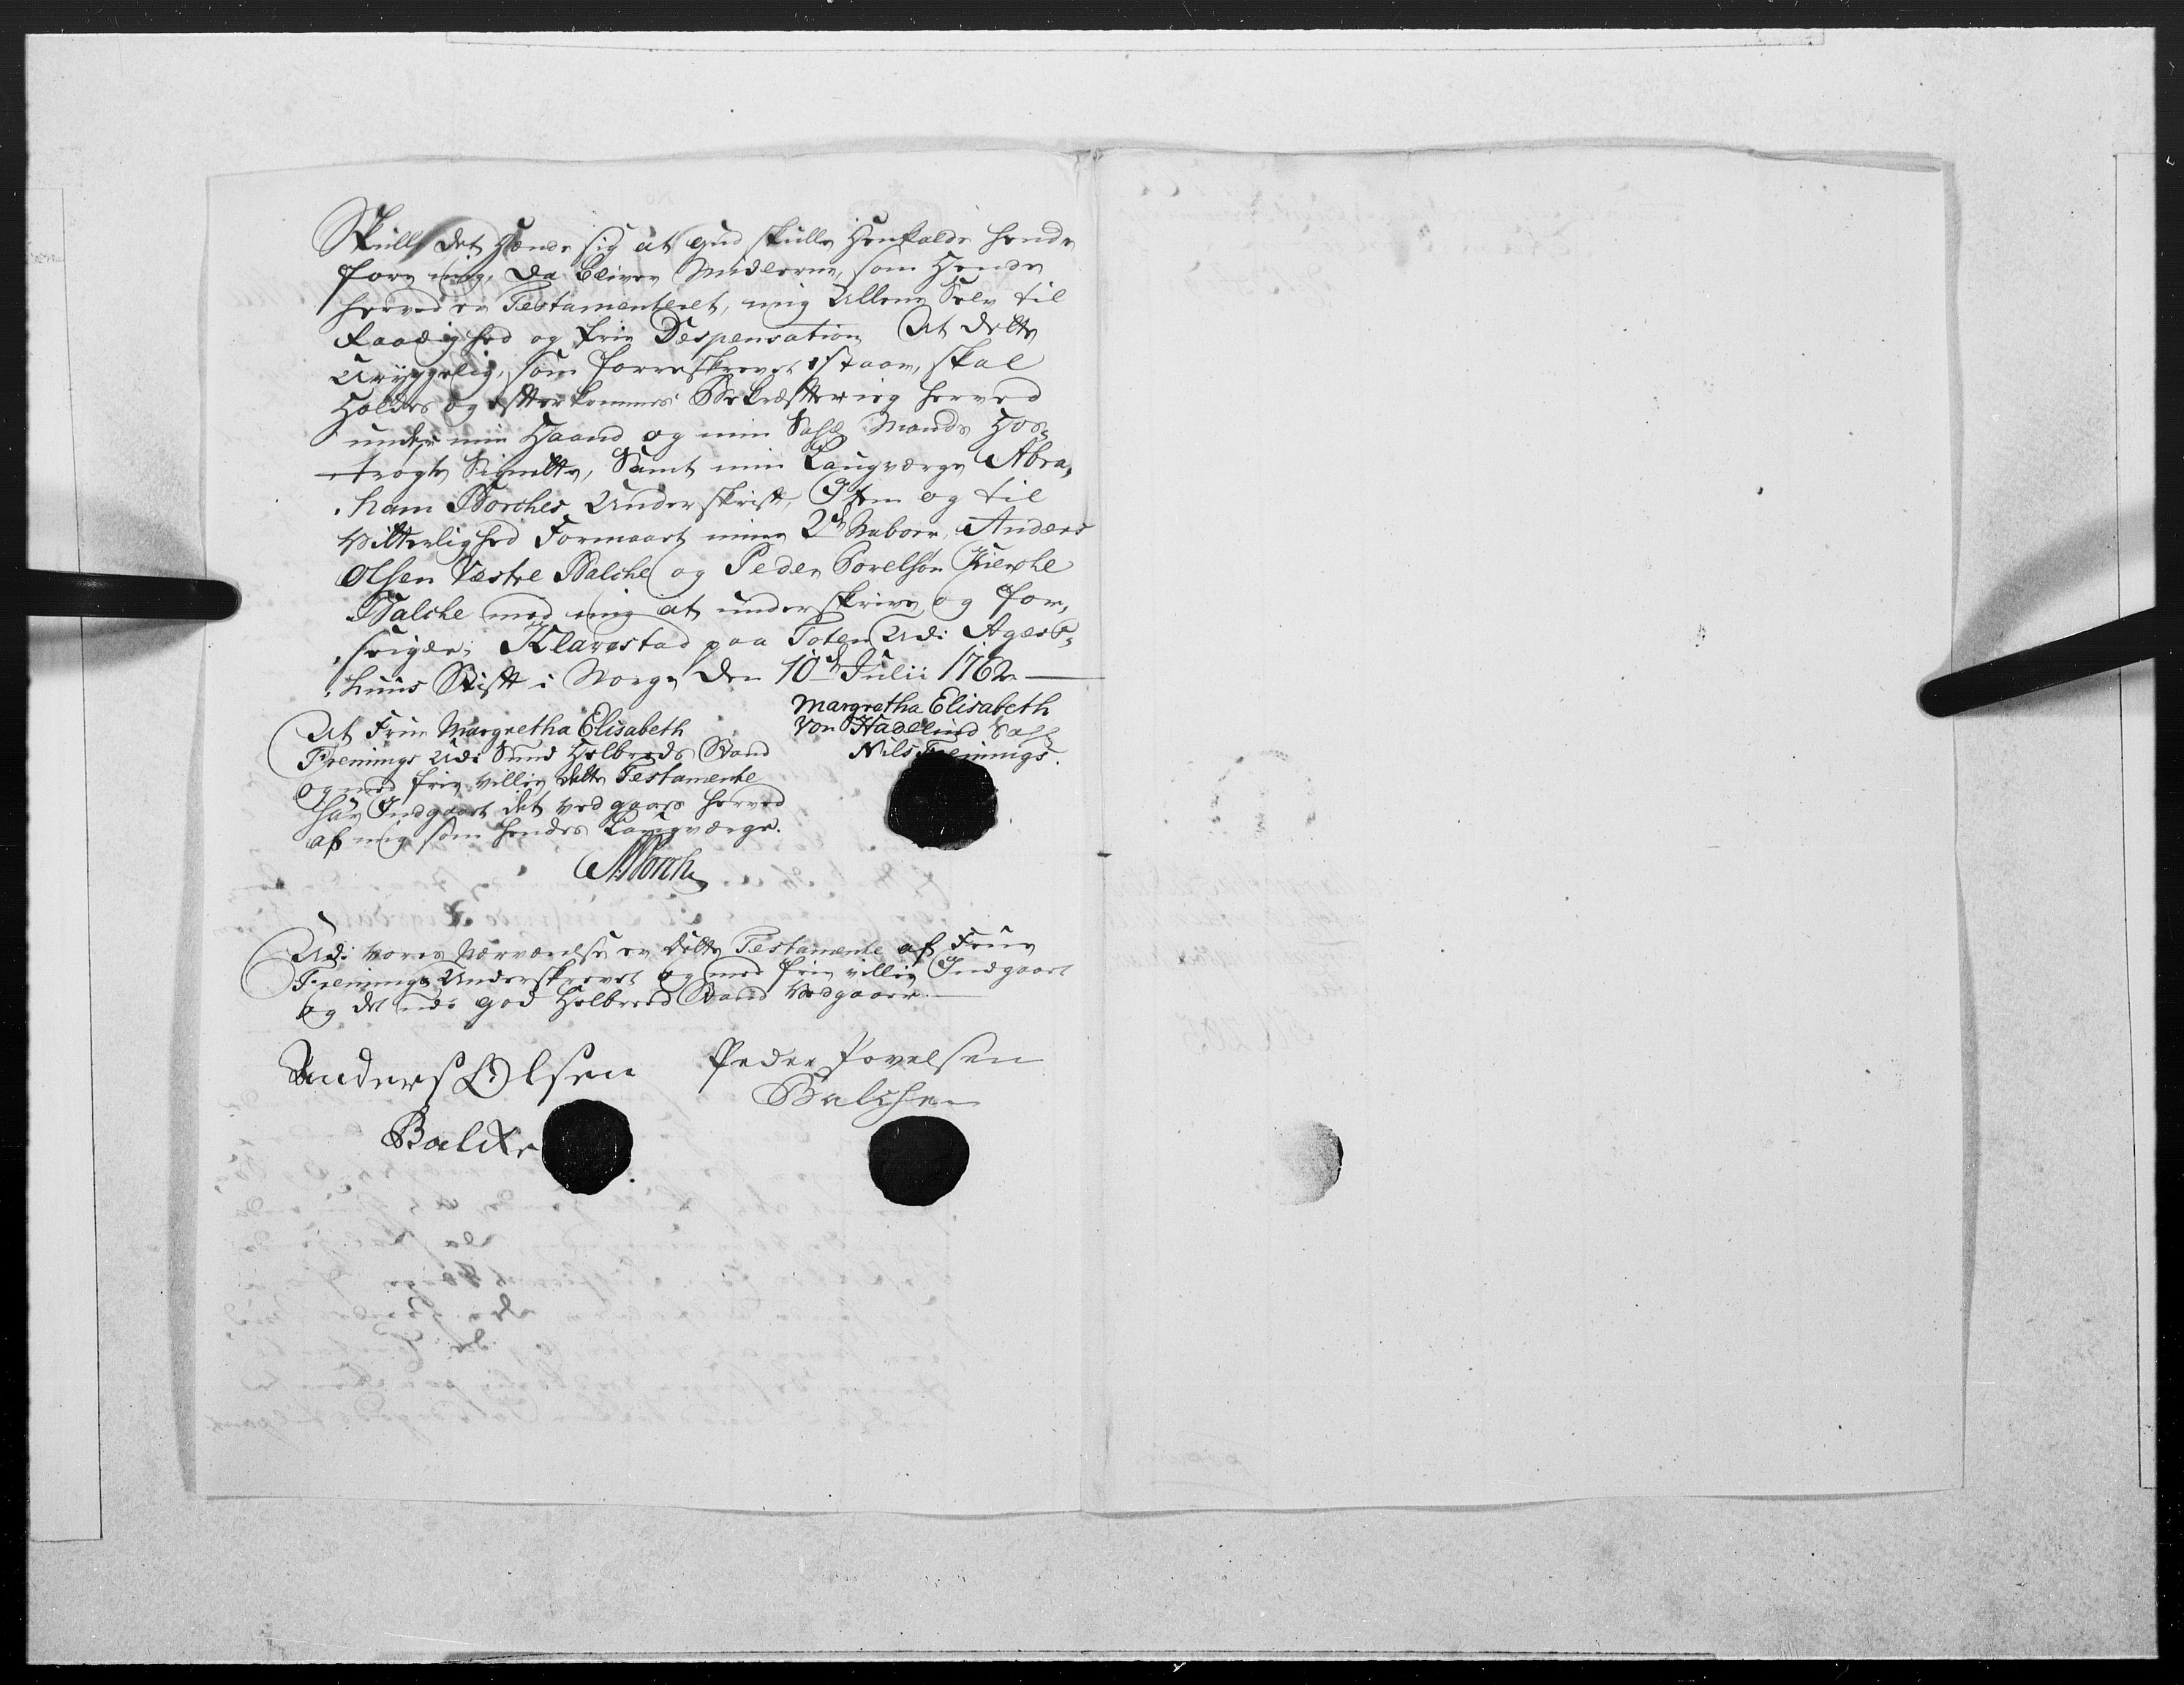 Skulle det Hænde sig at Gud skulle Henkalde hende
före mig, da bliver Midlerne, som Hende
herved er Testamenteret, mig Allene Selv til
Raadighed og frie Despensation. At dette
Uryggelig, som forreskrevet staar, skal
Holdes og efterkommes Bekræfter ieg herved
under min Haand og min Sahl: Mands Hos-
trögte Signette, Samt min Laugværge Abra-
ham Borches Underskrift, Item og til
Vitterlighed Formaart mine 2de Naboer, Anders
Olsen Vestre Balche og Peder Povelsön Kierche
Balche med mig at underskrive og for-
seigle; Klavestad paa Toten Udi Agers-
huus Stift i Norge den 10de Julii 1762
Margretha Elisabeth
von Hadelind Sahl:
Nils Frennings.
At Frue Margretha Elisabeth
Frennings Udi Sund Helbreds Stand
og med frie villie dette Testamente
har Indgaaet det ved gaaes herved
af mig som hendes Laugværge.
ABorch
Udi vores Nærværelse er dette Testamente af Frue
Frennings Underskrevet og med frie villie Indgaaet
og det udi god Helbreed Stand Vedgaaer.
Anders Olsen
Balke
Peder Povelsen
Balche